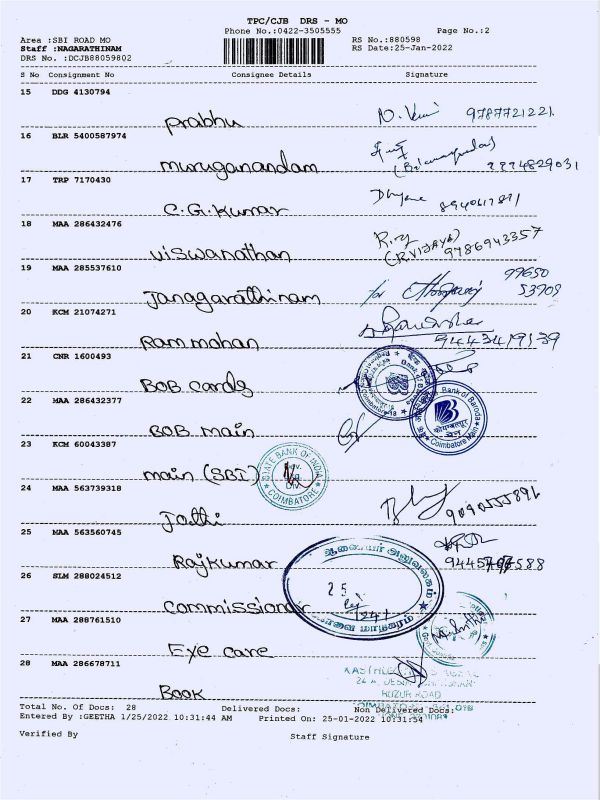 TPC/CJB DRS - MO
Phone No.:0422-3505555 Page No.:2
Area :SBI ROAD MO RS No.:880598
Staff :NAGARATHINAM RS Date:25-Jan-2022
DRS No. :DCJB88059802
S No Consignment No Consignee Details Signature
15 DDG 4130794
Prabhu 9787721221.
16 BLR 5400587974
muruganandam
17 TRP 7170430
C.G.Kumar
18 MAA 286432476
viswanathan (R.VIJAYA) 9786943357
19 MAA 285537610
Janagarathinam for 99650 53909
20 KCM 21074271
Ram mohan 9443419139
21 CNR 1600493
BOB cards
22 MAA 286432377
BOB main Bank of Baroda कोयम्बत्तूर मेन Coimbatore Main
23 KCM 60043387
main (SBI) STATE BANK OF INDIA COIMBATORE
24 MAA 563739318
Jothi
25 MAA 563560745
Rajkumar
26 SLM 288024512
Commissioner 25
27 MAA 288761510
Eye care
28 MAA 286678711
Book
HUZUR ROAD
Total No. Of Docs: 28 Delivered Docs: Non Delivered Docs:
Entered By :GEETHA 1/25/2022 10:31:44 AM Printed On: 25-01-2022 10:31:54
Verified By Staff Signature